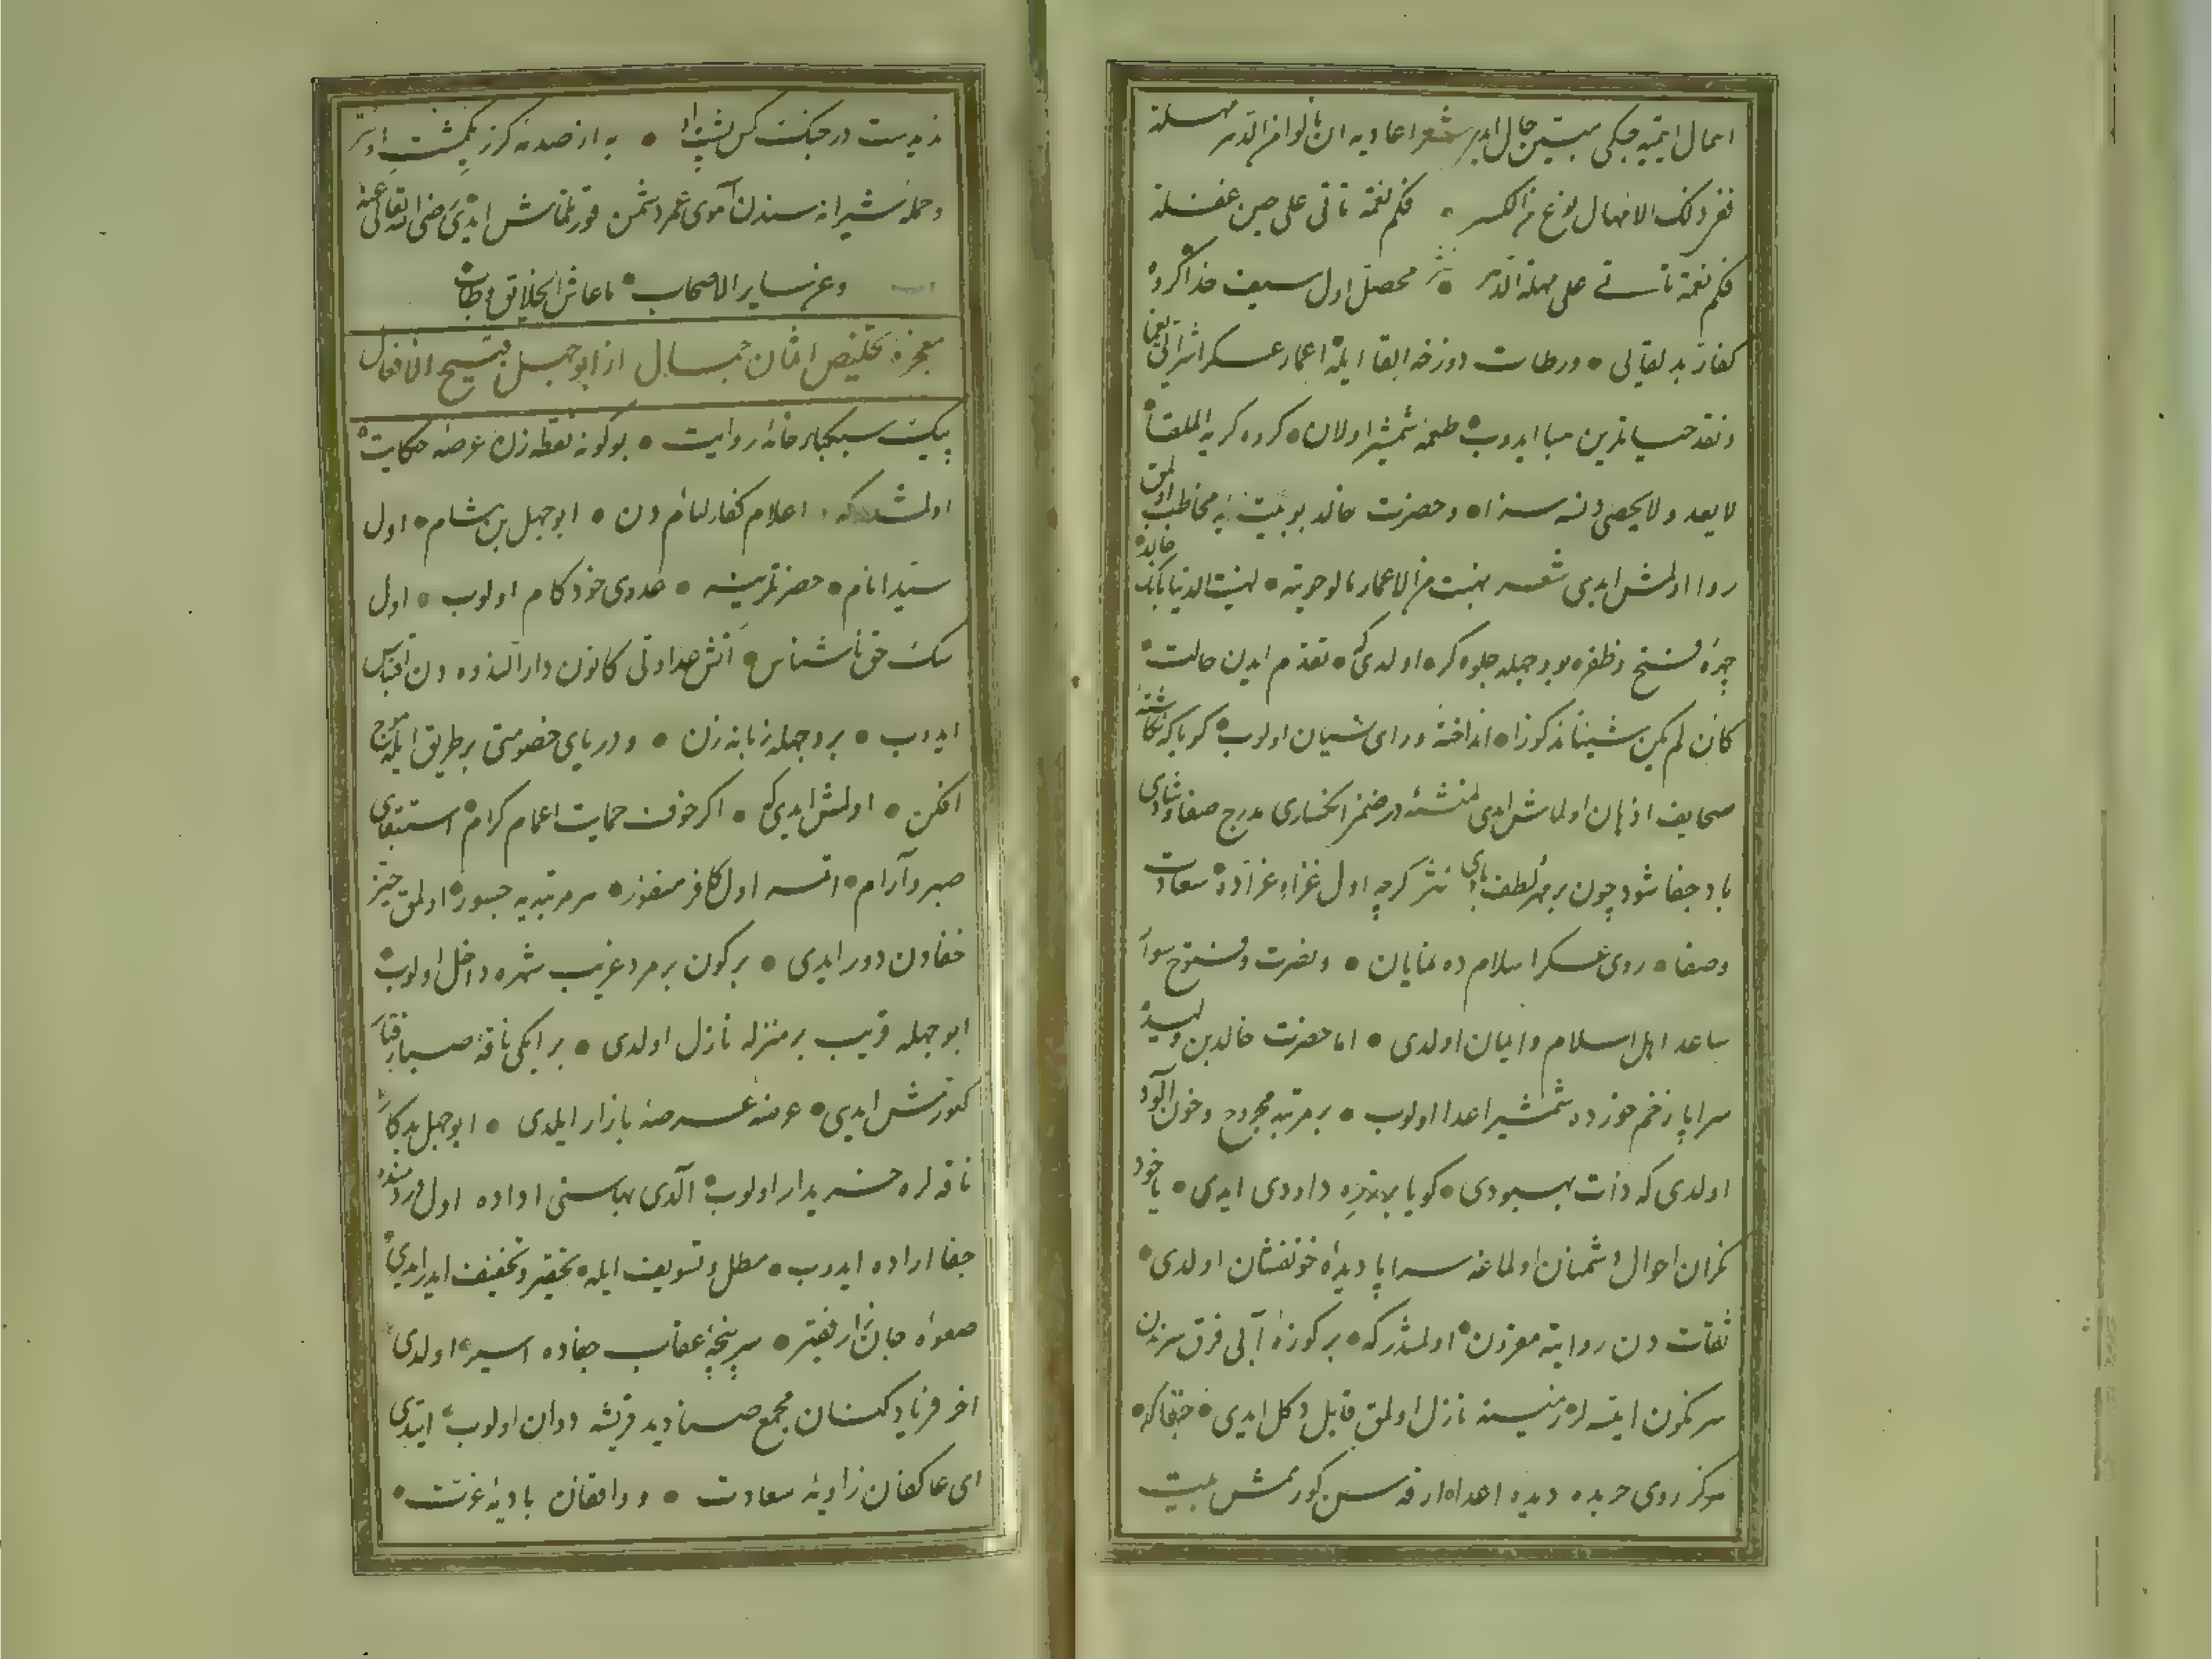 اعمال ایتیه جکی مبین حال ایدر شعر اعادیه ان نالوا من الدهر مهلة
فغر ذلك الامهال نوع من المكر • فكم نقمة تأتی علی حین غفلة
فكم نقمة تأتی علی مهلة الدهر • نثر محصل اول سیف خدا گروه
كفار بد لقایی • ورطات دوزخه القا ایله اعمار عسكر اشراری
ونقد حیاتلرین هبا ایدوب طعمه شمشیر اولان • گروه كریه الملقا
لا یعد ولا یحصی دنسه سزا • وحضرت خالد بو بیت ایله مخاطب اولمق
روا اولمش ایدی شعر نهبت من الاعمار ما لو حویته • لهنئت الدنیا بانك خالد
چهرۀ فتح وظفر بو وجهله جلوه گر اولدی كه • تقدم ایدن حالت
كان لم یكن شیئا مذكورا • انداختۀ ورای نسیان اولوب گویا كه نگاشتۀ
صحایف اذهان اولمامش ایدی لمنشئه در ضمن انكساری مدرج صفا وشادی
باد جفا شود چون بر مهر لطف بادی نثر گرچه اول غزاء غراده سعادت
وصفا • روی عسكر اسلام ده نمایان • ونصرت وفتوح سوار
ساعد اهل اسلام وایمان اولدی • اما حضرت خالد بن ولید
سراپا زخم خورده شمشیر اعدا اولوب • بر مرتبه مجروح وخون آلود
اولدی كه ذات بهبودی • گویا بر زره داودی ایدی • یا خود
نگران احوال دشمنان اولماغه سراپا دیدۀ خونفشان اولدی •
ثقات دن روایته مقرون اولمشدر كه • بر كوزۀ آبی فرق سرندن
سرنگون ایتسه لر زمینه نازل اولمق قابل دكل ایدی • حقا كه •
هرگز روی حربده دیده اعدا ارقه سن گورمش بیت
زبردست در جنگ كس پشت او • به از صد نه گرز یك مشت او نثر
وحمله شیرانه سندن آهوی عمر دشمن قورتلمامش ایدی رضی الله تعالی عنه
وعن سایر الاصحاب • ما عاش الخلایق وطاب
معجزۀ تخلیص اثمان جمال از ابو جهل قبیح الافعال
پیك سبكبار خانۀ روایت • بو گونه نقطه زن عرصۀ حكایت
اولمشدر كه • اعلام كفار لئام دن • ابو جهل بن هشام • اول
سید انام • حضرتلرینه • عدوی خود كام اولوب • اول
سك حق ناشناس • آتش عداوتی كانون دار الندوه دن اقتباس
ایدوب • بر وجهله زبانه زن • ودریای خصومتی بر طریق ایله موج
افكن • اولمش ایدی كه • اگر خوف حمایت اعمام كرام استبقای
صبر وآرام • اتسه اول كافر منفور • هر مرتبه یه جسور اولمق حیز
خفادن دور ایدی • بر گون بر مرد غریب شهره داخل اولوب
ابو جهله قریب بر منزله نازل اولدی • بر ایكی ناقۀ صبا رفتار
كتورمش ایدی • عرضۀ عرصۀ بازار ایلدی • ابو جهل بدكار
ناقه لره خریدار اولوب آلدی بهاسنی اداده اول دردمنده
جفا اراده ایدوب • مطل وتسویف ایله تحقیر وتخفیف ایدر ایدی
صعوۀ جان زار فقیر • سر پنجۀ عقاب جفاده اسیر اولدی
اخر فریاد كنان مجمع صنادید قریشه دوان اولوب ایتدی
ای عاكفان زاویۀ سعادت • وواقفان بادیۀ عزت •